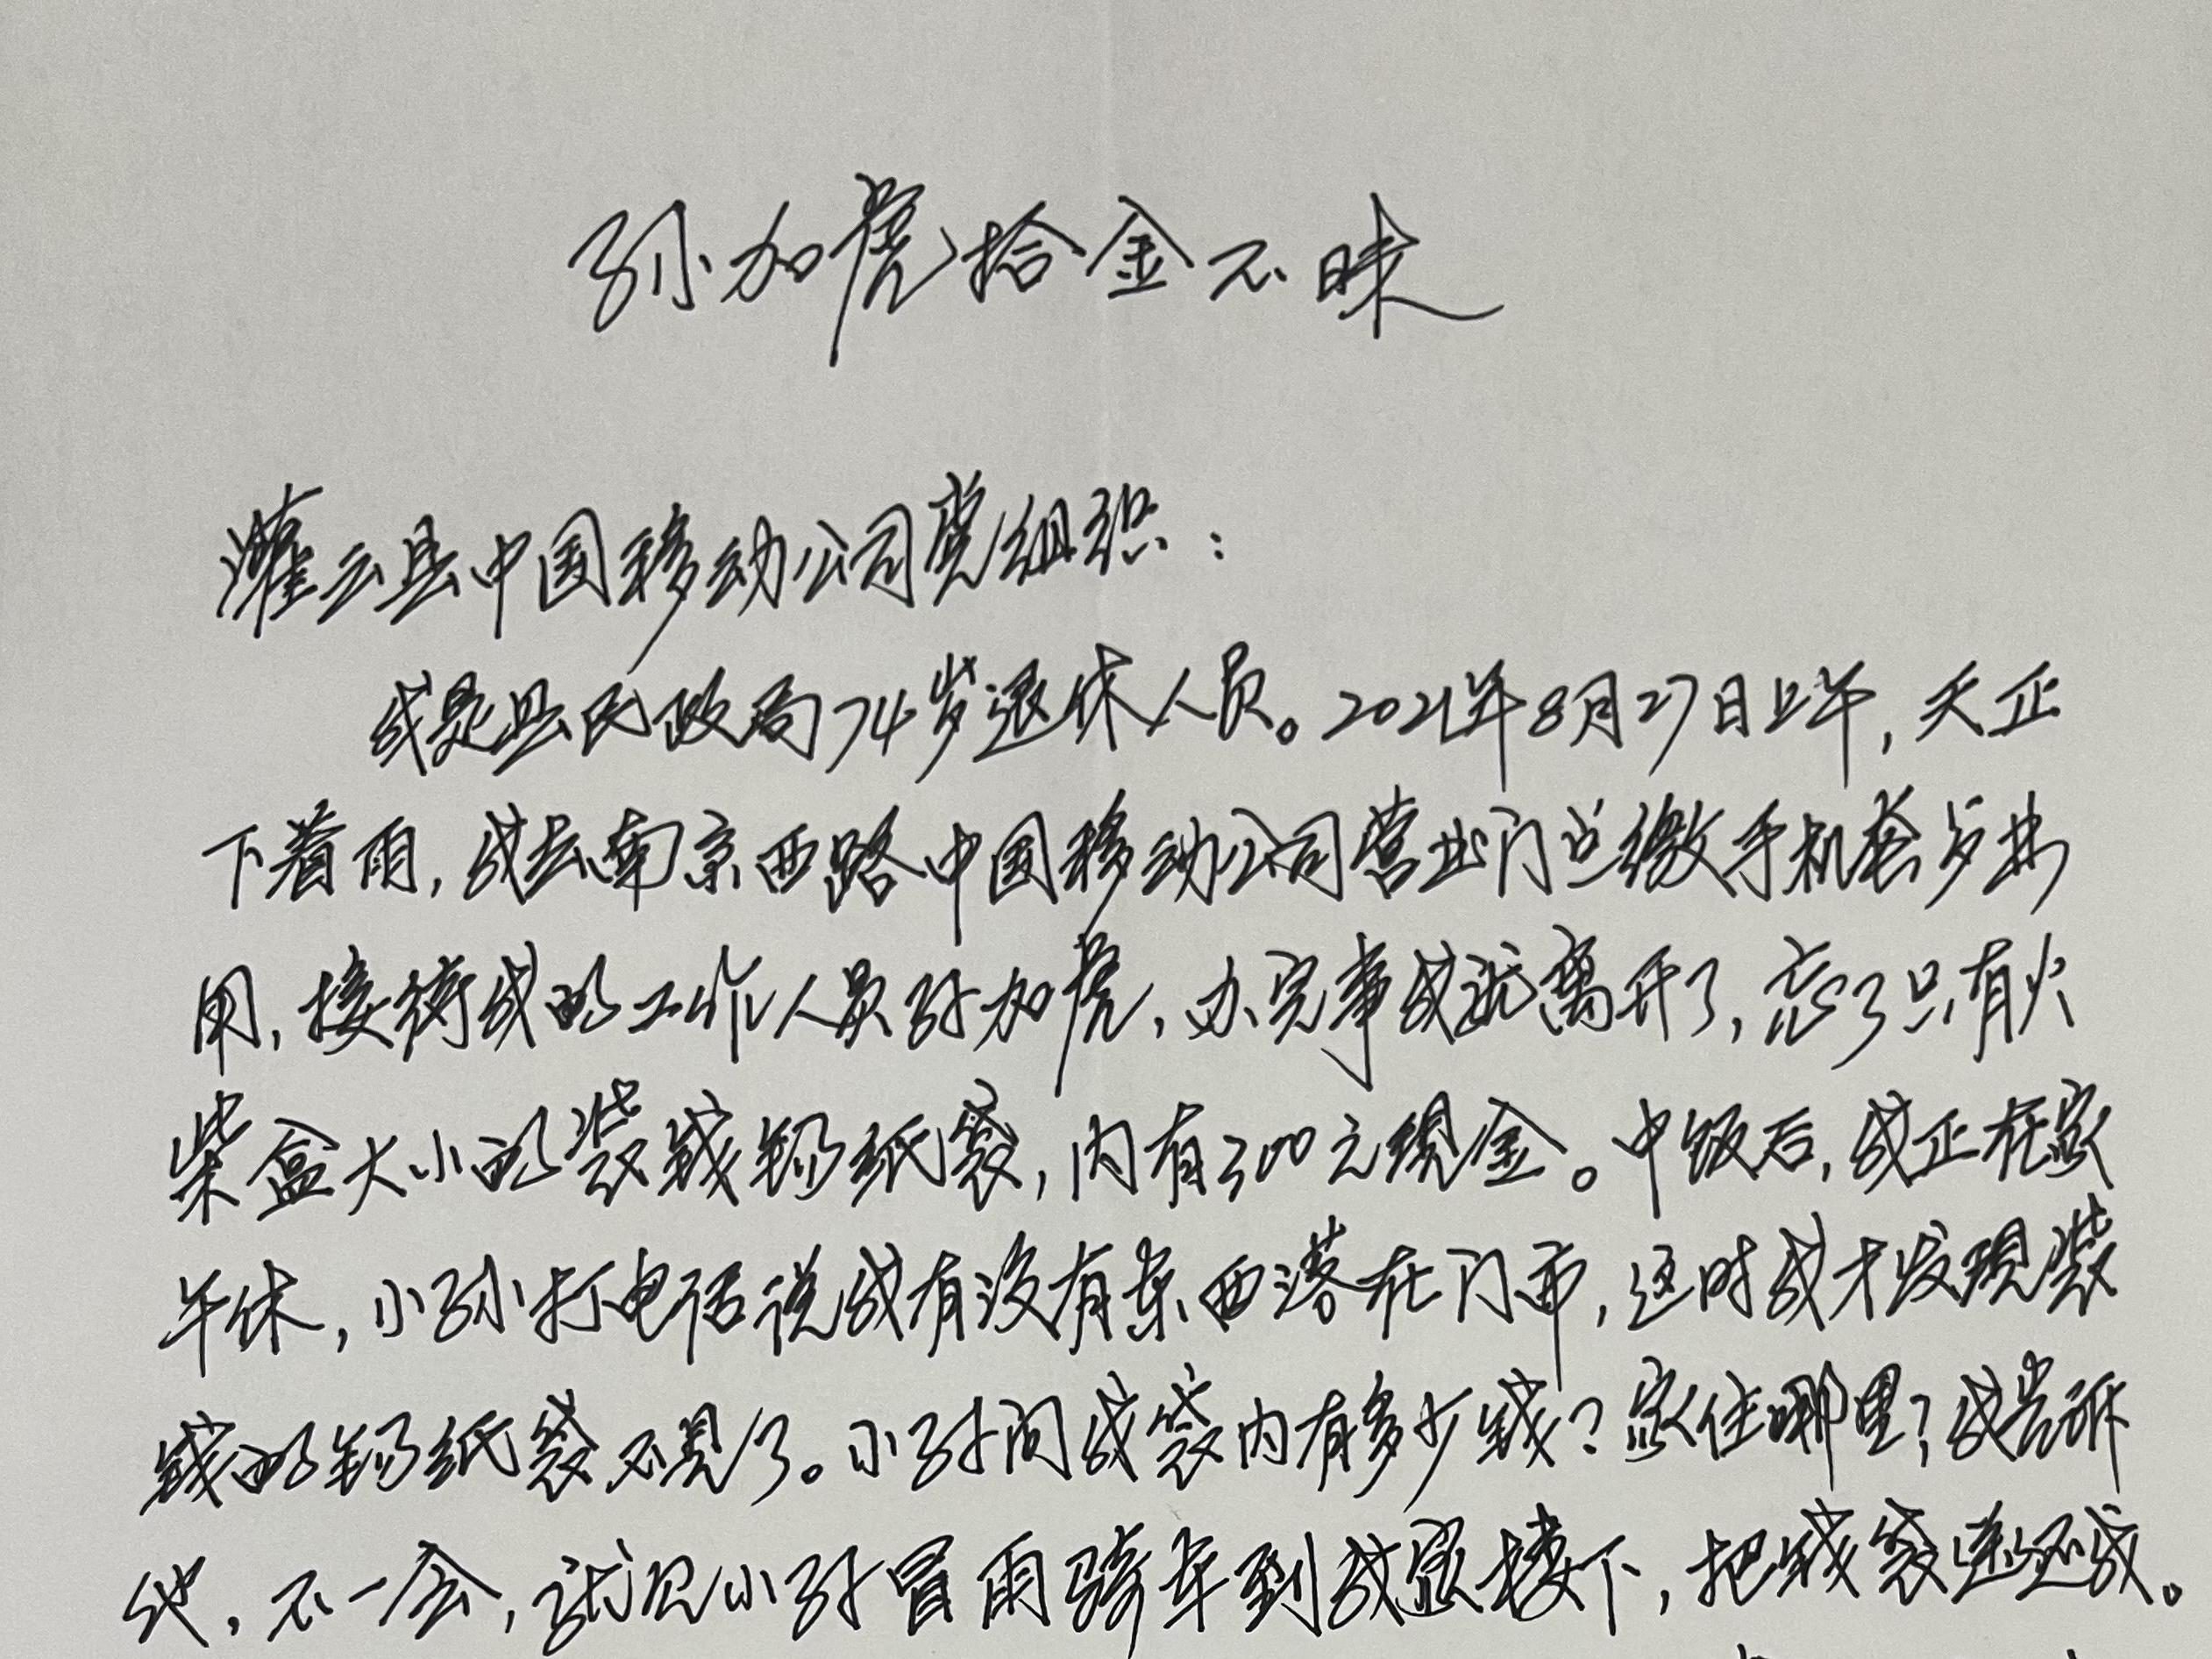 孙加虎拾金不昧
灌云县中国移动公司党组织：
我是县民政局74岁退休人员。2021年8月27日上午，天正
下着雨，我去南京西路中国移动公司营业门点缴手机套餐费
用，接待我的工作人员孙加虎，办完事我就离开了，忘了只有火
柴盒大小的装钱锡纸袋，内有300元现金。中饭后，我正在家
午休，小孙打电话说我有没有东西落在门市，这时我才发现装
钱的锡纸袋不见了。小孙问我袋内有多少钱？家住哪里？我告诉
他，不一会，就见小孙冒雨骑车到我家楼下，把钱袋送还我。